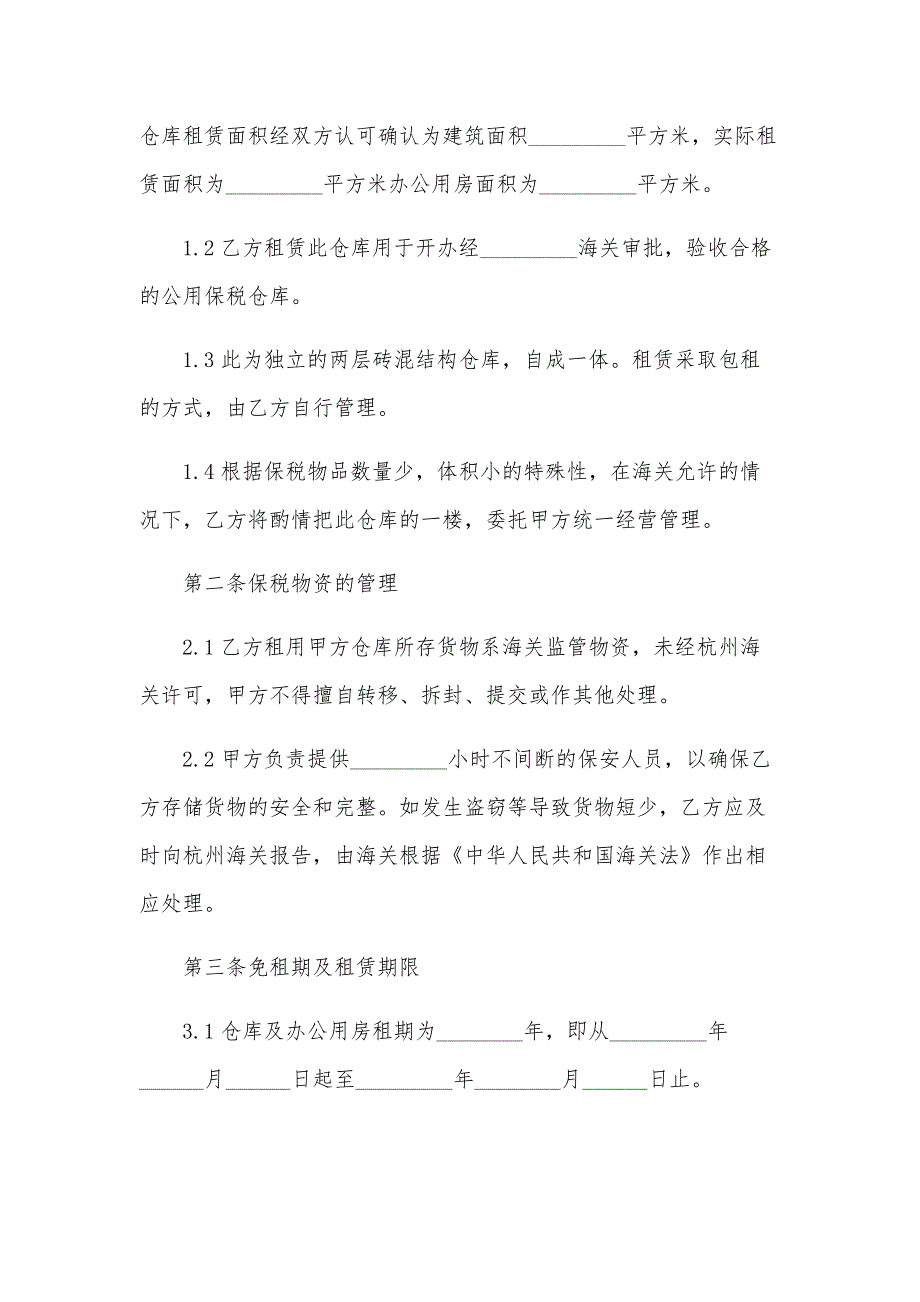 仓库租赁面积经双方认可确认为建筑面积_________平方米，实际租
赁面积为_________平方米办公用房面积为_________平方米。
1.2 乙方租赁此仓库用于开办经_________海关审批，验收合格
的公用保税仓库。
1.3 此为独立的两层砖混结构仓库，自成一体。租赁采取包租
的方式，由乙方自行管理。
1.4 根据保税物品数量少，体积小的特殊性，在海关允许的情
况下，乙方将酌情把此仓库的一楼，委托甲方统一经营管理。
第二条保税物资的管理
2.1 乙方租用甲方仓库所存货物系海关监管物资，未经杭州海
关许可，甲方不得擅自转移、拆封、提交或作其他处理。
2.2 甲方负责提供_________小时不间断的保安人员，以确保乙
方存储货物的安全和完整。如发生盗窃等导致货物短少，乙方应及
时向杭州海关报告，由海关根据《中华人民共和国海关法》作出相
应处理。
第三条免租期及租赁期限
3.1 仓库及办公用房租期为________年，即从_________年
______月______日起至_________年________月______日止。